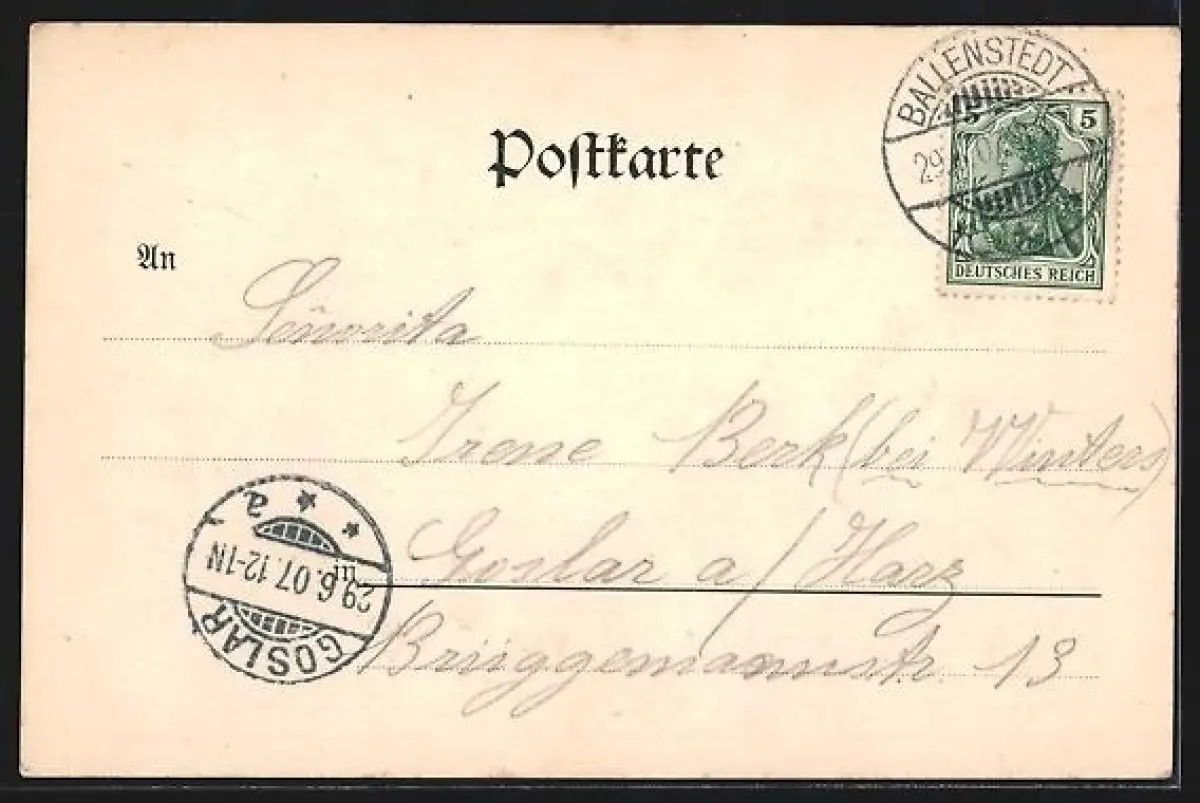 BALLENSTEDT
29
5
DEUTSCHES REICH
Postkarte
An
Señorita
Irene Berk (bei Winters)
in Goslar a/Harz
Brüggemannstr. 13
GOSLAR
29.6.07.12-1N
* * a